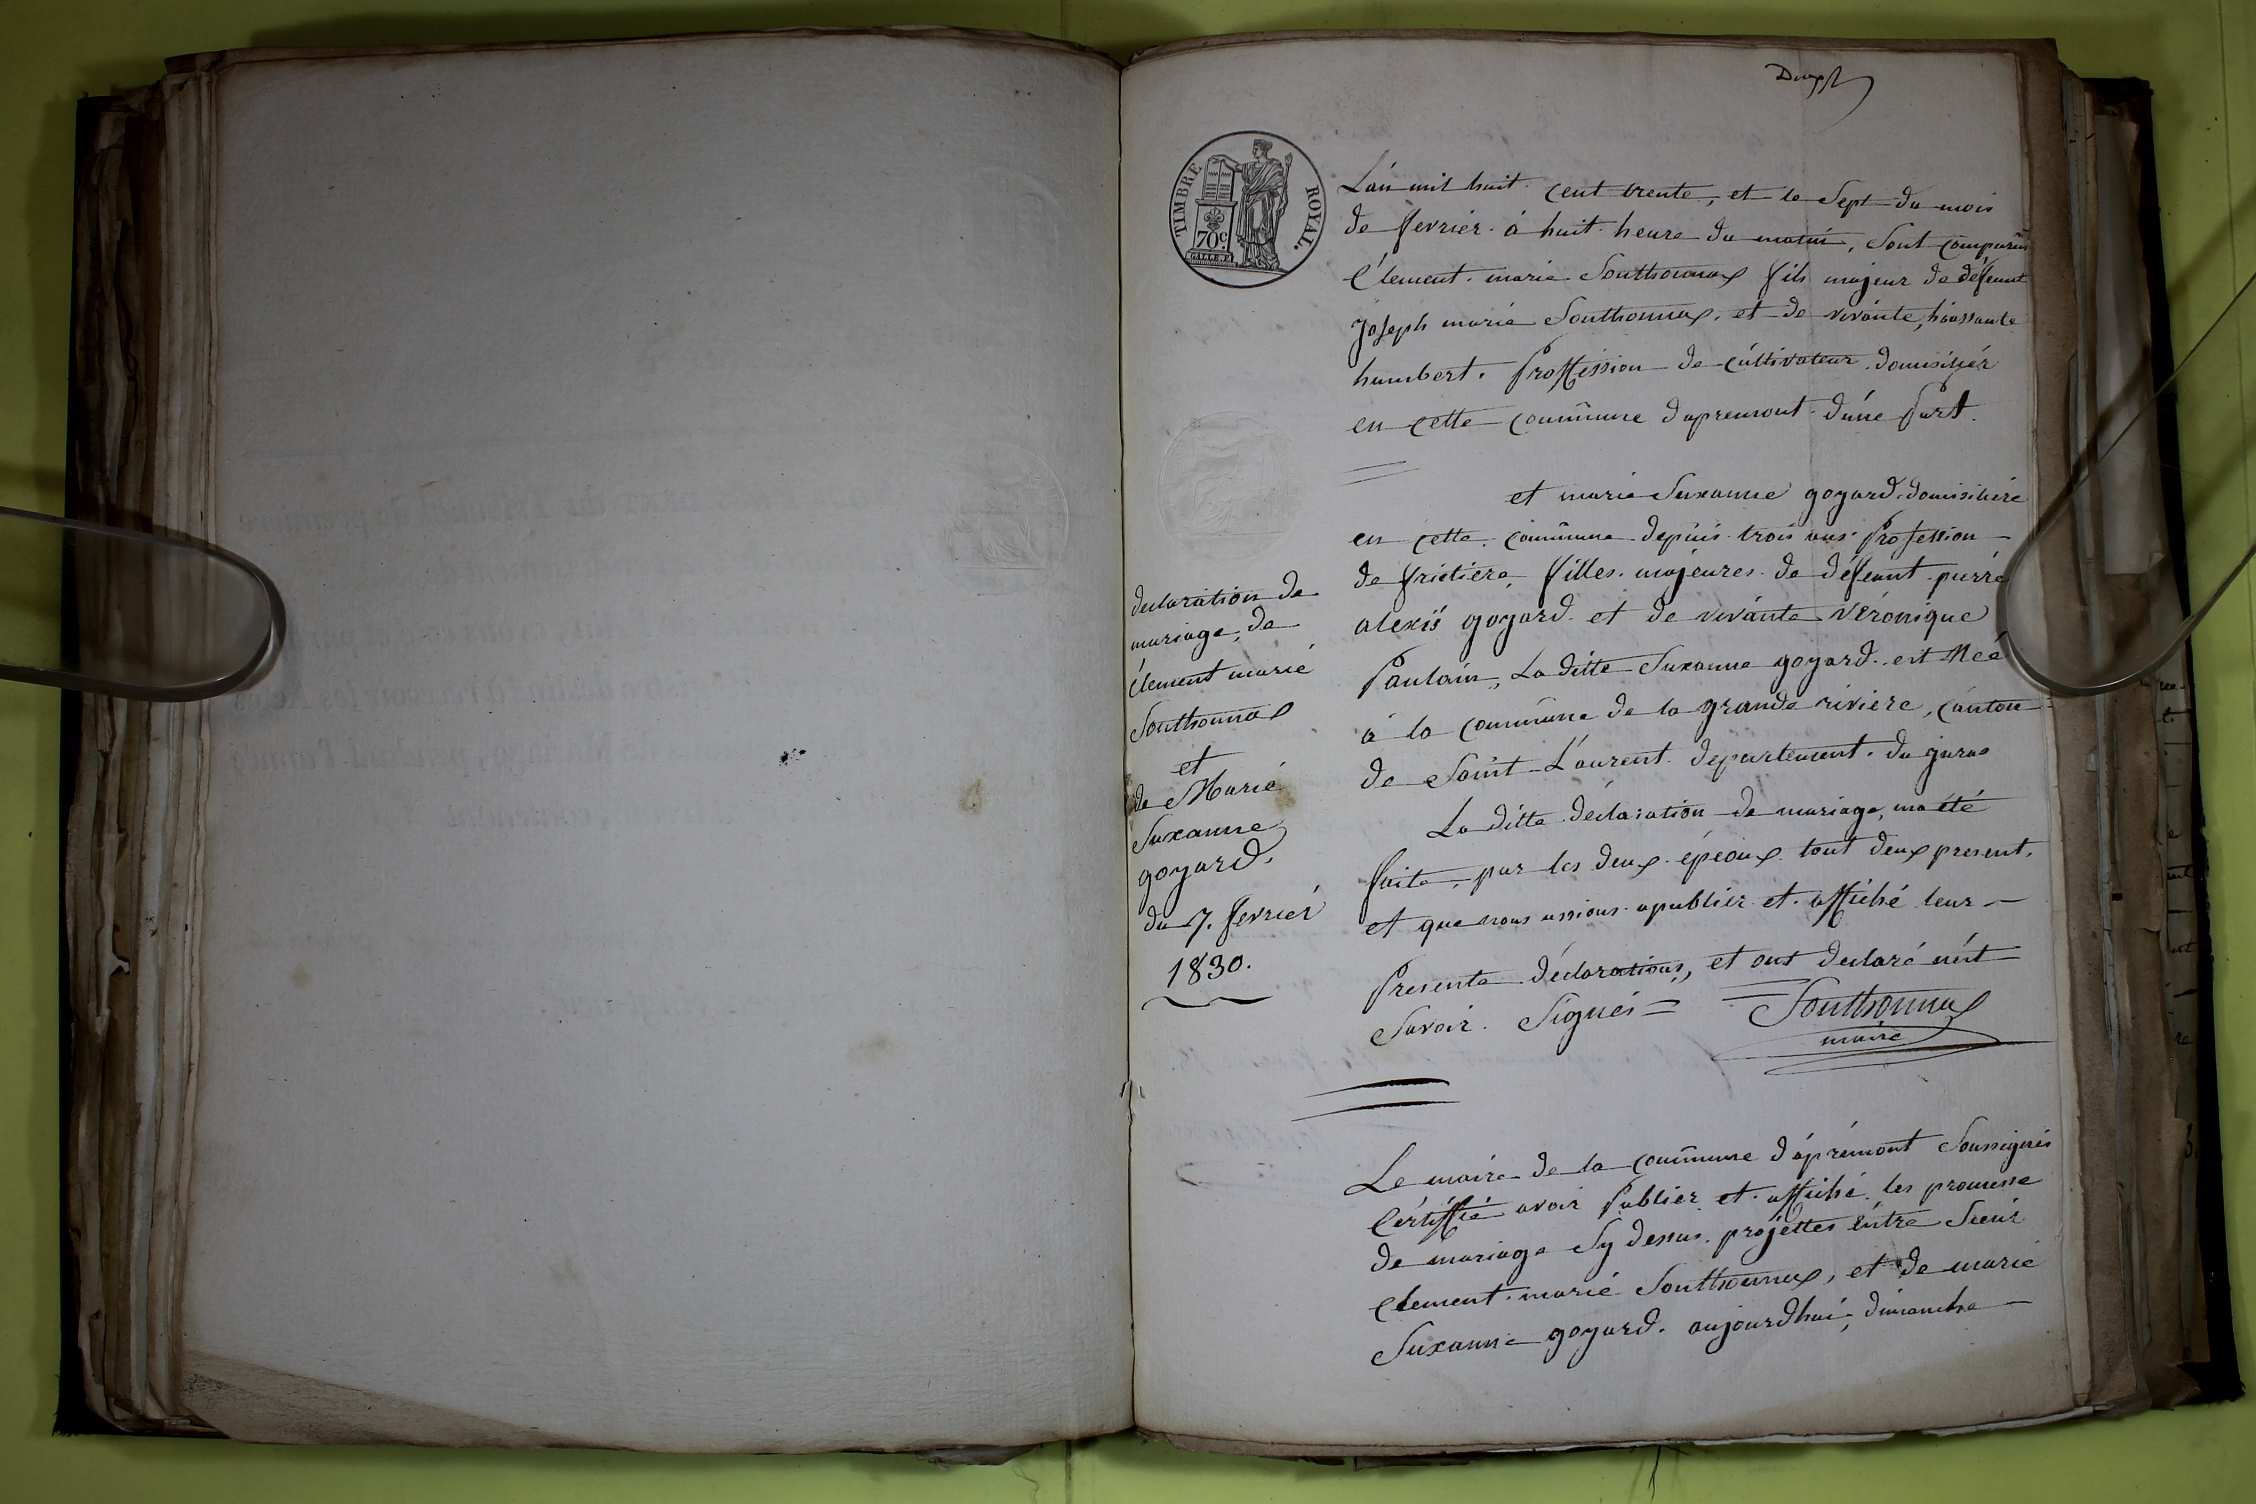 TIMBRE ROYAL.
70c.
L'an mil huit cent trente, et le Sept du mois
de fevrier à huit heure du matin, Sont comparus
Clément marie Sonthonnax fils majeur de défeunt
Joseph marie Sonthonnax, et de vivante,
humbert. Proffission de cultivateur domisiliér
en cette commune dapremont d'une Part.
et marie Suxanne goyard domisiliére
en cette commune depuis trois ans Profession
de fritiere, filles majeures de défeunt pierre
alexis goyard et de vivante véronique
Paulain, La ditte Suxanne goyard est Néé
à la commune de la grande riviere, canton
de Saint Laurent departement du juras
La ditte déclaration de mariage, ma été
faite, par les deux épeoux tout deux present,
et que nous assions apublier et affiché leur
Presente déclarations, et ont declaré
Savoir Signés = Sonthonnax
maire
declaration de
mariage, de
Clement marie
Sonthonnax
et
de Marie
Suxanne
goyard.
du 7. fevrier
1830.
Le maire de la commune d'apremont Soussignés
Cértiffié avoir Publier et affiché les promesse
de mariage Sy dessus projettes entre Sieur
Clement marie Sonthonnax, et de marie
Suxanne goyard. aujourdhui, dimanche